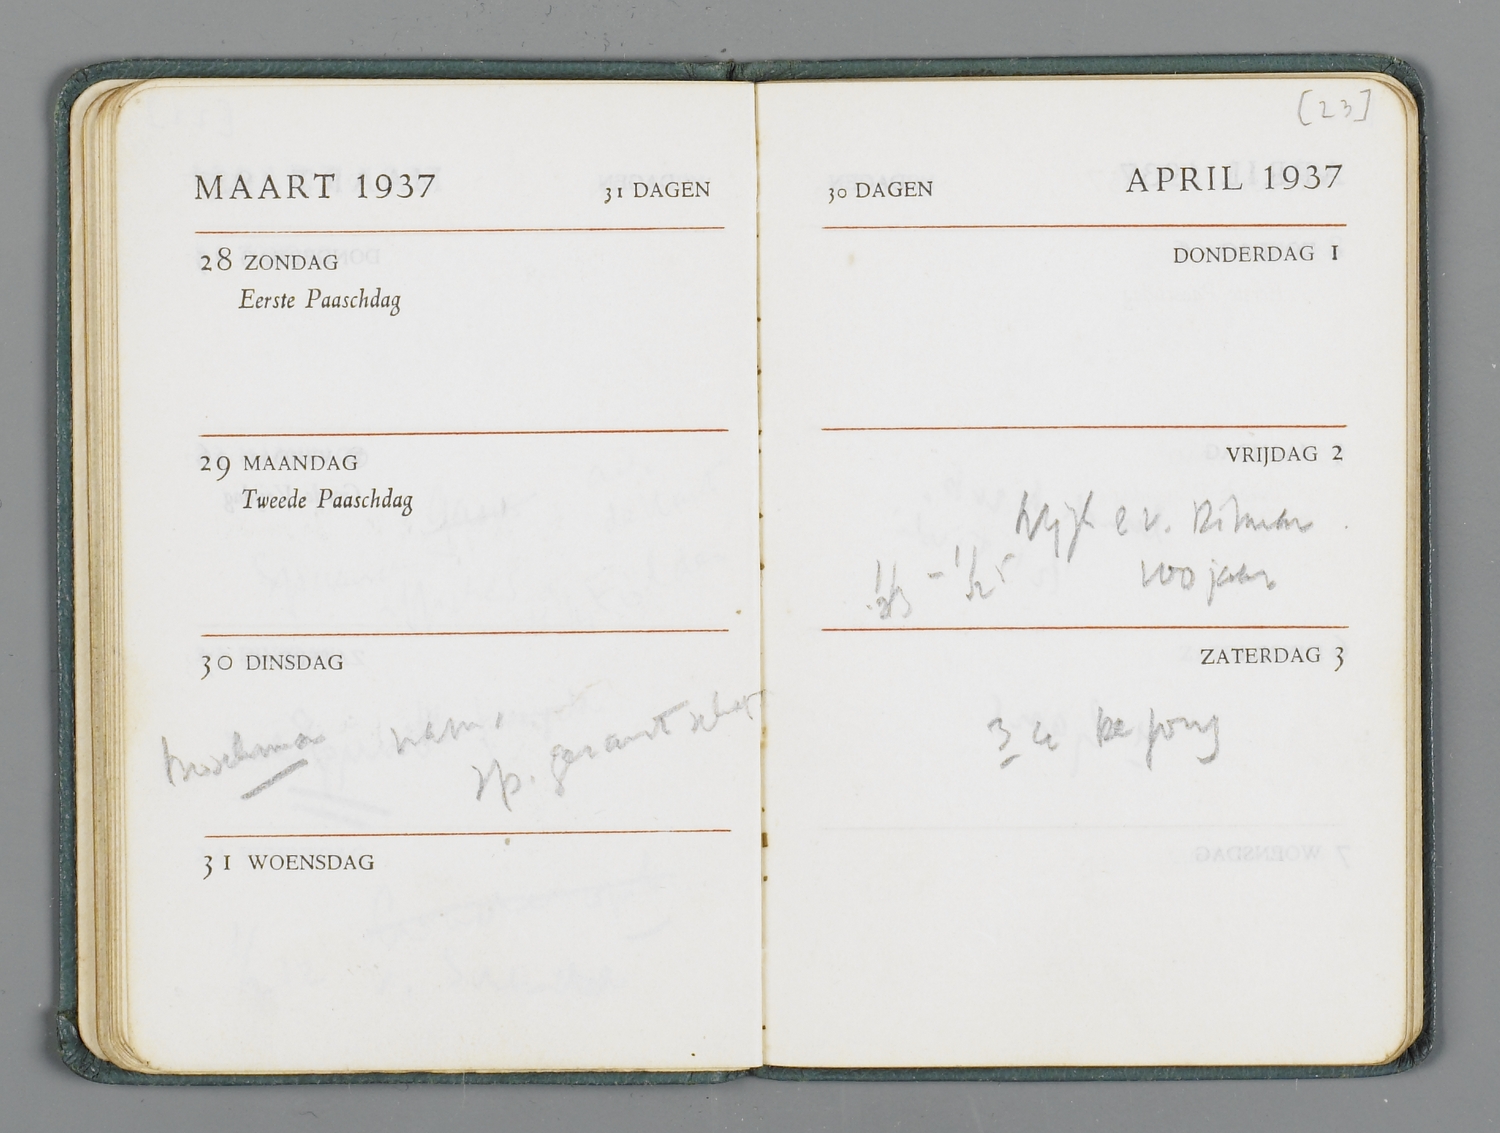 MAART 1937 31 DAGEN
28 ZONDAG
Eerste Paaschdag
29 MAANDAG
Tweede Paaschdag
30 DINSDAG
nam.
sp. gezantschap
31 WOENSDAG
[23]
30 DAGEN APRIL 1937
DONDERDAG 1
VRIJDAG 2
e.v.
100 jaar
ZATERDAG 3
3 u de jong